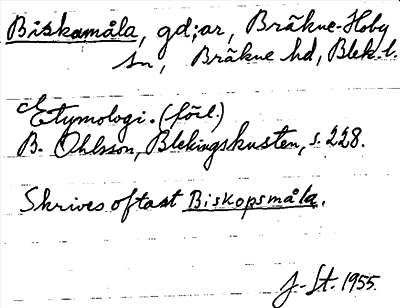 Biskamåla, gd;ar, Bräkne-Hoby
sn, Bräkne hd, Blek. l.
Etymologi. (förl.)
B. Ohlsson, Blekingskusten, s. 228.
Skrives oftast Biskopsmåla.
J-St. 1955.